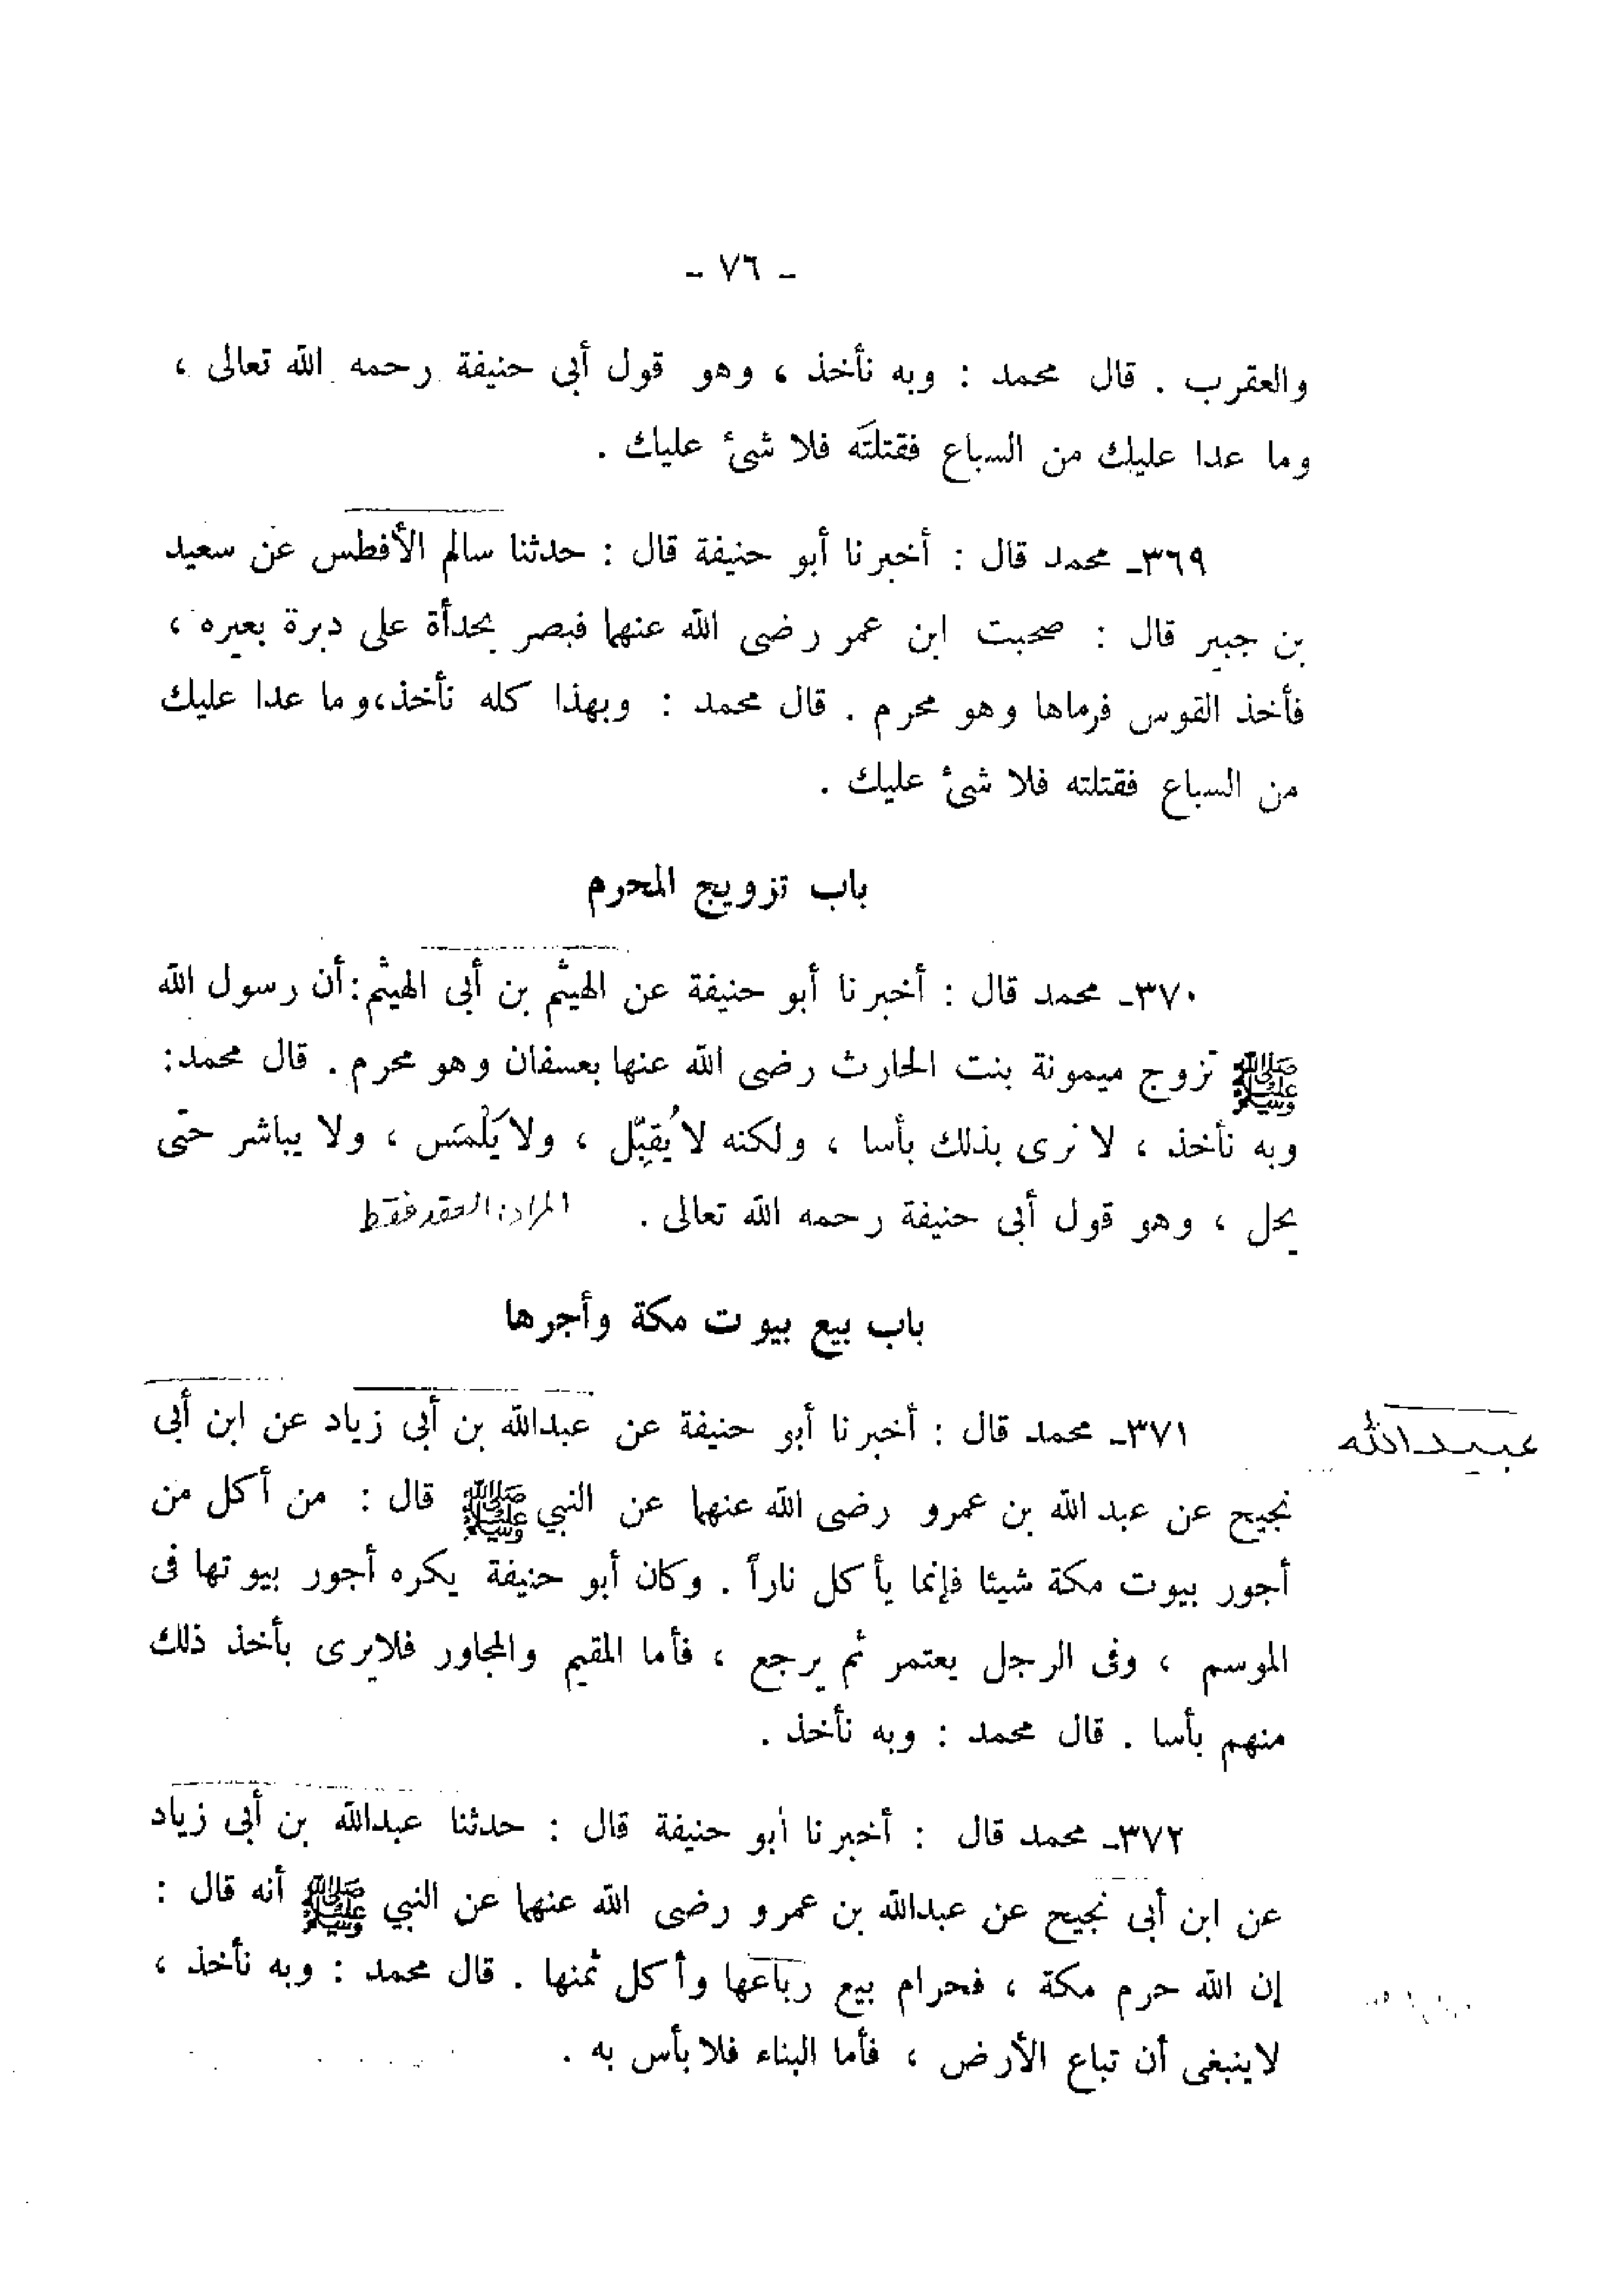 - ٧٦ -
والعقرب . قال محمد : وبه نأخذ ، وهو قول أبى حنيفة رحمه الله تعالى ،
وما عدا عليك من السباع فقتلتَه فلا شىء عليك .
٣٦٩ـ محمد قال : أخبرنا أبو حنيفة قال : حدثنا سالم الأفطس عن سعيد
بن جبير قال : صحبت ابن عمر رضى الله عنهما فبصر بحدأة على دبرة بعيره ،
فأخذ القوس فرماها وهو محرم . قال محمد : وبهذا كله نأخذ، وما عدا عليك
من السباع فقتلته فلا شىء عليك .
باب تزويج المحرم
٣٧٠ـ محمد قال : أخبرنا أبو حنيفة عن الهيثم بن أبى الهيثم: أن رسول الله
ﷺ تزوج ميمونة بنت الحارث رضى الله عنها بعسفان وهو محرم . قال محمد:
وبه نأخذ ، لا نرى بذلك بأسا ، ولكنه لا يُقبِّل ، ولا يَلْمَس ، ولا يباشر حتى
يحل ، وهو قول أبى حنيفة رحمه الله تعالى . المراد: العقد فقط
باب بيع بيوت مكة وأجرها
٣٧١ـ محمد قال : أخبرنا أبو حنيفة عن عبدالله بن أبى زياد عن ابن أبى
عبيدالله
نجيح عن عبد الله بن عمرو رضى الله عنهما عن النبي ﷺ قال : من أكل من
أجور بيوت مكة شيئا فإنما يأكل ناراً . وكان أبو حنيفة يكره أجور بيوتها فى
الموسم ، وفى الرجل يعتمر ثم يرجع ، فأما المقيم والمجاور فلايرى بأخذ ذلك
منهم بأسا . قال محمد : وبه نأخذ .
٣٧٢ـ محمد قال : أخبرنا أبو حنيفة قال : حدثنا عبدالله بن أبى زياد
عن ابن أبى نجيح عن عبدالله بن عمرو رضى الله عنهما عن النبي ﷺ أنه قال :
إن الله حرم مكة ، فحرام بيع رباعها وأكل ثمنها . قال محمد : وبه نأخذ ،
لاينبغى أن تباع الأرض ، فأما البناء فلا بأس به .